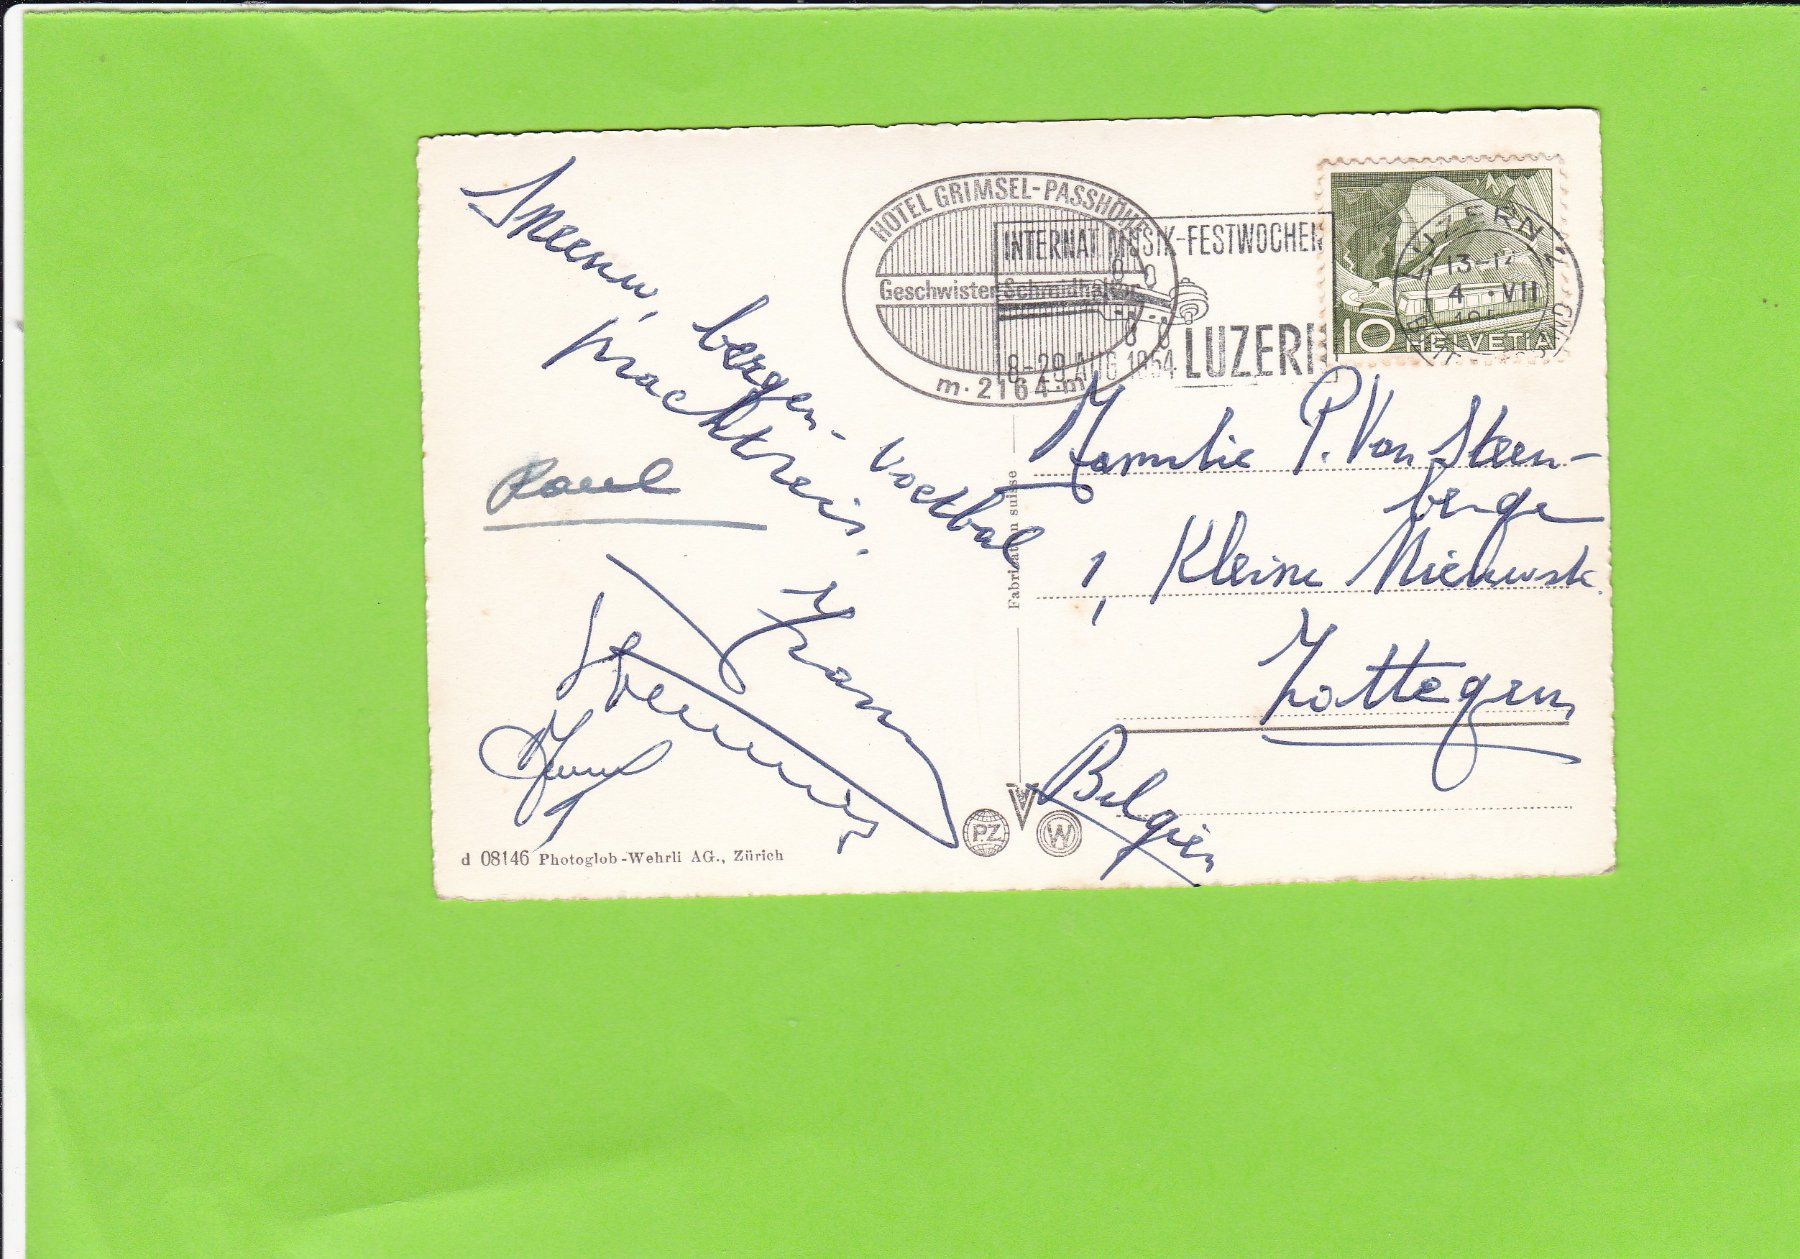 Sneeuw, bergen - voetbal
prachtreis.
Raul
Frans
HOTEL GRIMSEL-PASSHÖHE
Geschwister Schmidhalter
m·2164·m
INTERNAT MUSIK-FESTWOCHEN
8-29 AUG 1954 LUZERN
LUZERN 1
13-14
4 · VII
10 HELVETIA
Familie P. Van Steen-
berge
1, Kleine Nieuwstr.
Zottegem
België
Fabrication suisse
PZ
W
d 08146 Photoglob-Wehrli AG., Zürich